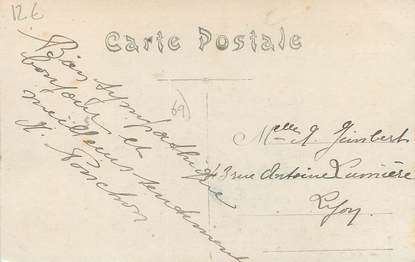 12 €
Carte Postale
69
Bien sympathique
bonjour et
meilleurs sentiments
A. Ponchon
Melle A. Jimbert
43 rue Antoine Lumière
Lyon